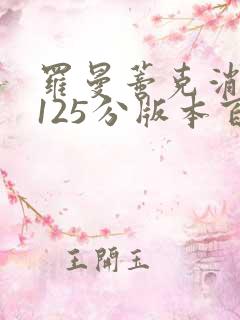 羅曼蒂克消
125分版本百
王開玉